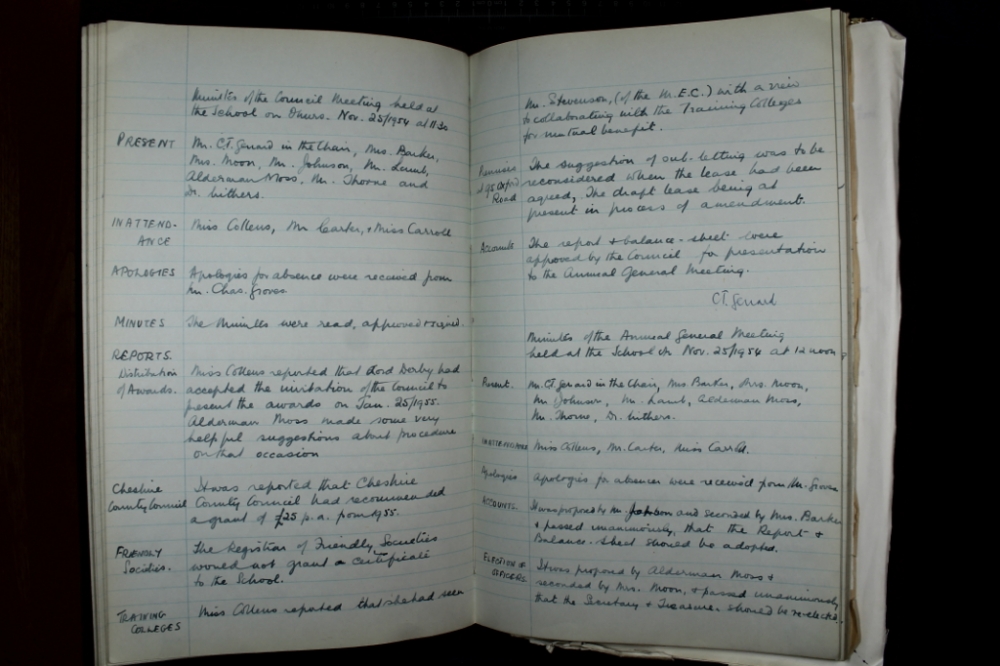 Minutes of the Council Meeting held at
the School on Thurs. Nov. 25/1954 at 11.30
PRESENT Mr. C.T. Gerrard in the Chair, Mrs. Barker,
Mrs. Moon, Mr. Johnson, Mr. Lamb,
Alderman Moss, Mr. Thorne and
Dr. Withers.
IN ATTEND- Miss Collens, Mr Carter, + Miss Carroll
ANCE
APOLOGIES Apologies for absence were received from
Mr. Chas. Groves
MINUTES The Minutes were read, approved + signed.
REPORTS.
Distribution Miss Collens reported that Lord Derby had
of Awards. accepted the invitation of the Council to
present the awards on Jan. 25/1955.
Alderman Moss made some very
helpful suggestions about procedure
on that occasion
Cheshire It was reported that Cheshire
County Council County Council had recommended
a grant of £25 p.a. from 1955.
FRIENDLY The Registrar of Friendly Societies
Societies. would not grant a certificate
to the School.
TRAINING Miss Collens reported that she had seen
COLLEGES
Mr. Stevenson, (of the M.E.C.) with a view
to collaborating with the Training Colleges
for mutual benefit.
Premises The suggestion of sub-letting was to be
at 95 Oxford reconsidered when the lease had been
Road agreed, The draft lease being at
present in process of amendment.
Accounts The report + balance-sheet were
approved by the Council for presentation
to the Annual General Meeting.
C.T. Gerrard
Minutes of the Annual General Meeting
held at the School on Nov. 25/1954 at 12 noon
Present. Mr. C.T. Gerrard in the Chair, Mrs Barker, Mrs. Moon,
Mr Johnson, Mr. Lamb, Alderman Moss,
Mr. Thorne, Dr. Withers.
IN ATTENDANCE Miss Collens, Mr. Carter, Miss Carroll.
Apologies Apologies for absence were received from Mr. Groves
ACCOUNTS. It was proposed by Mr. Johnson and seconded by Mrs. Barker
+ passed unanimously, that the Report +
Balance-sheet should be adopted.
ELECTION OF It was proposed by Alderman Moss +
OFFICERS seconded by Mrs. Moon, + passed unanimously
that the Secretary + Treasurer should be re-elected.